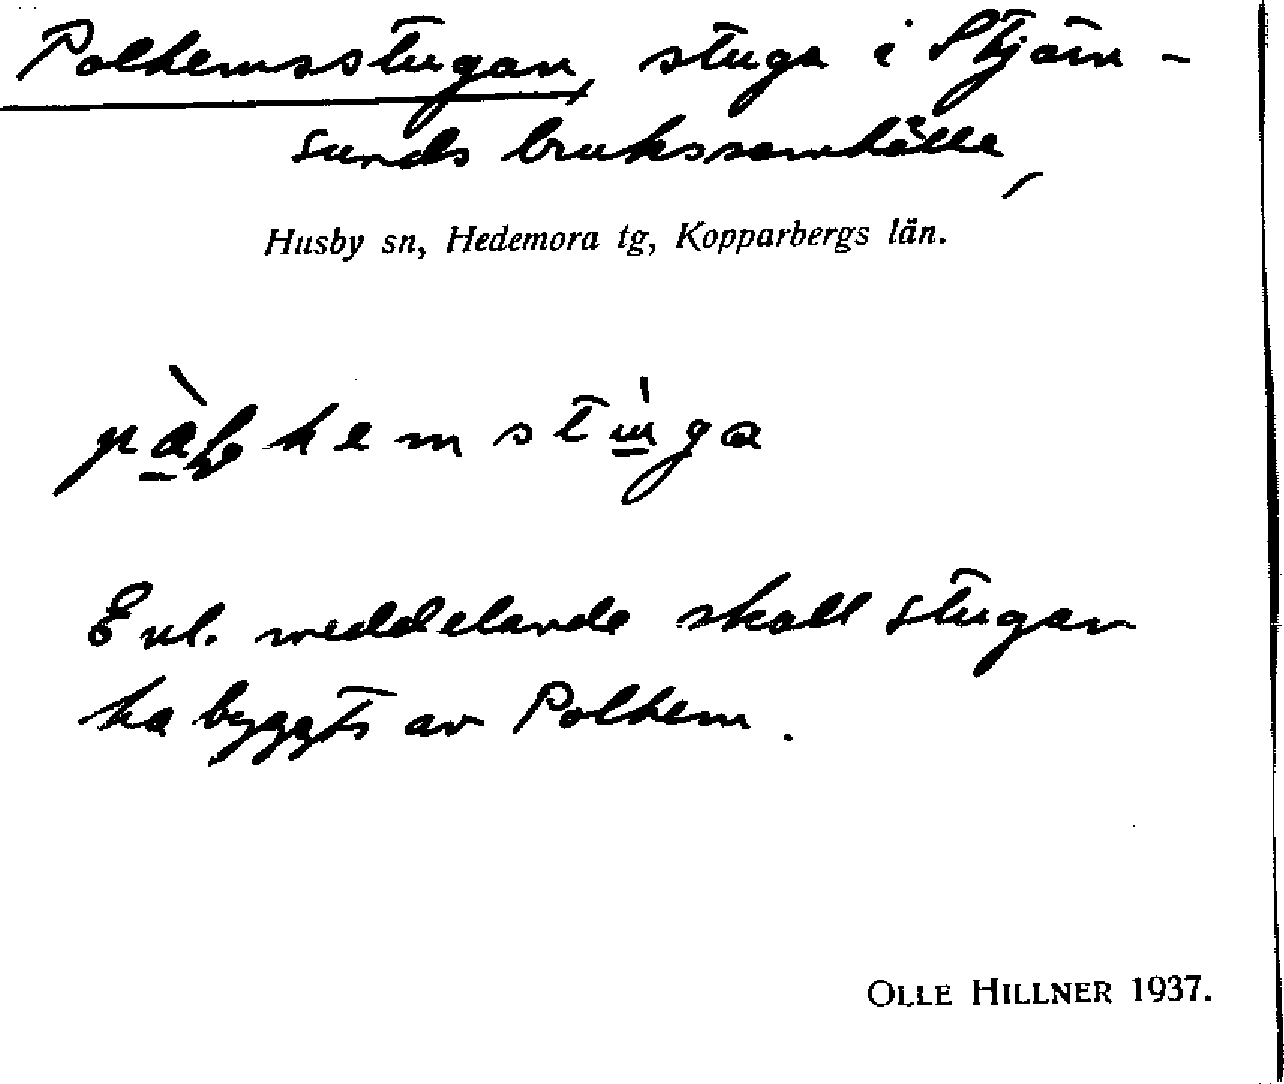 Polhemsstugan, stuga i Stjärn-
sunds brukssamhälle,
Husby sn, Hedemora tg, Kopparbergs län.
Enl. meddelande skall stugan
ha byggts av Polhem.
OLLE HILLNER 1937.